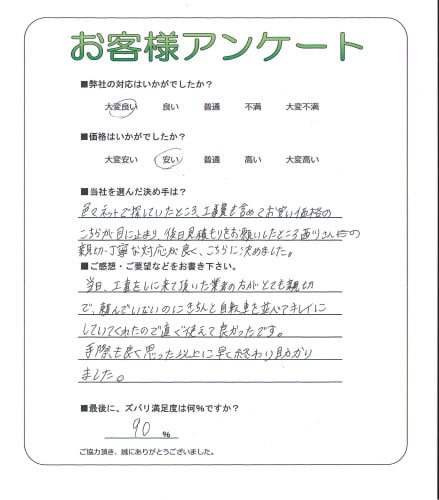 お客様アンケート
■弊社の対応はいかがでしたか?
大変良い 良い 普通 不満 大変不満
■価格はいかがでしたか?
大変安い 安い 普通 高い 大変高い
■当社を選んだ決め手は?
色々ネットで探していたところ、工事費も含めてお安い価格の
こちらが目に止まり、後日見積もりをお願いしたところ西川さんの
親切・丁寧な対応が良く、こちらに決めました。
■ご感想・ご要望などをお書き下さい。
当日、工事をしに来て頂いた業者の方がとても親切
で、頼んでいないのにきちんと自転車を並べてキレイに
していてくれたので直ぐ使えて良かったです。
手際も良く思った以上に早く終わり助かり
ました。
■最後に、ズバリ満足度は何%ですか?
90 %
ご協力頂き、誠にありがとうございました。